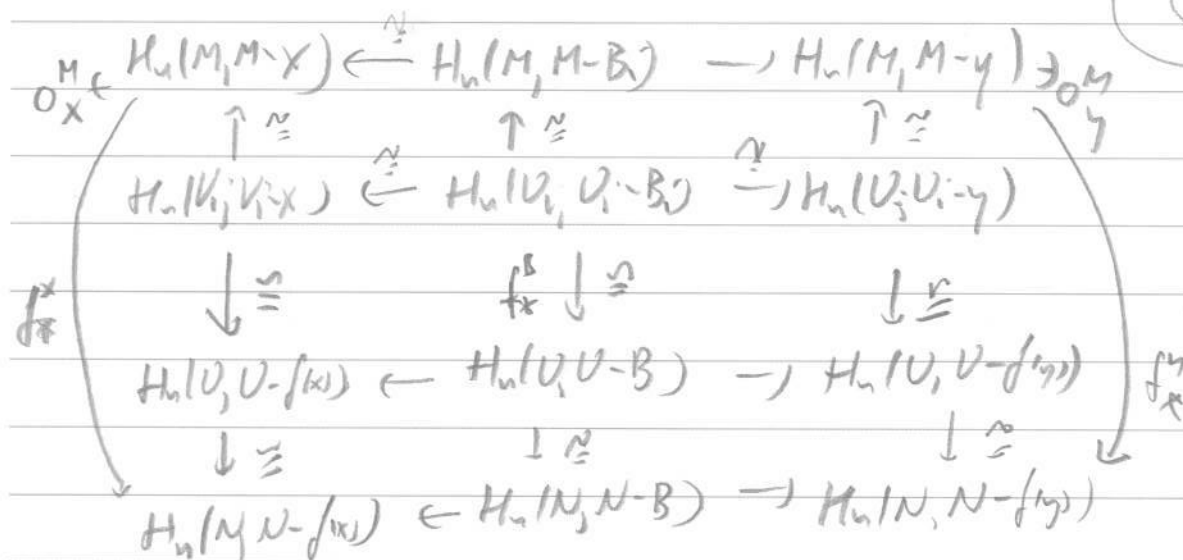 O_x^M ← H_n(M, M-x) ←≅ H_n(M, M-B_i) → H_n(M, M-y) → O_y^M
↑≅ ↑≅ ↑≅
H_n(U_i, U_i-x) ←≅ H_n(U_i, U_i-B_i) →≅ H_n(U_i, U_i-y)
f_*^x ↓≅ f_*^B ↓≅ ↓≅
H_n(U, U-f(x)) ← H_n(U, U-B) → H_n(U, U-f(y)) f_*^y
↓≅ ↓≅ ↓≅
H_n(N, N-f(x)) ← H_n(N, N-B) → H_n(N, N-f(y))